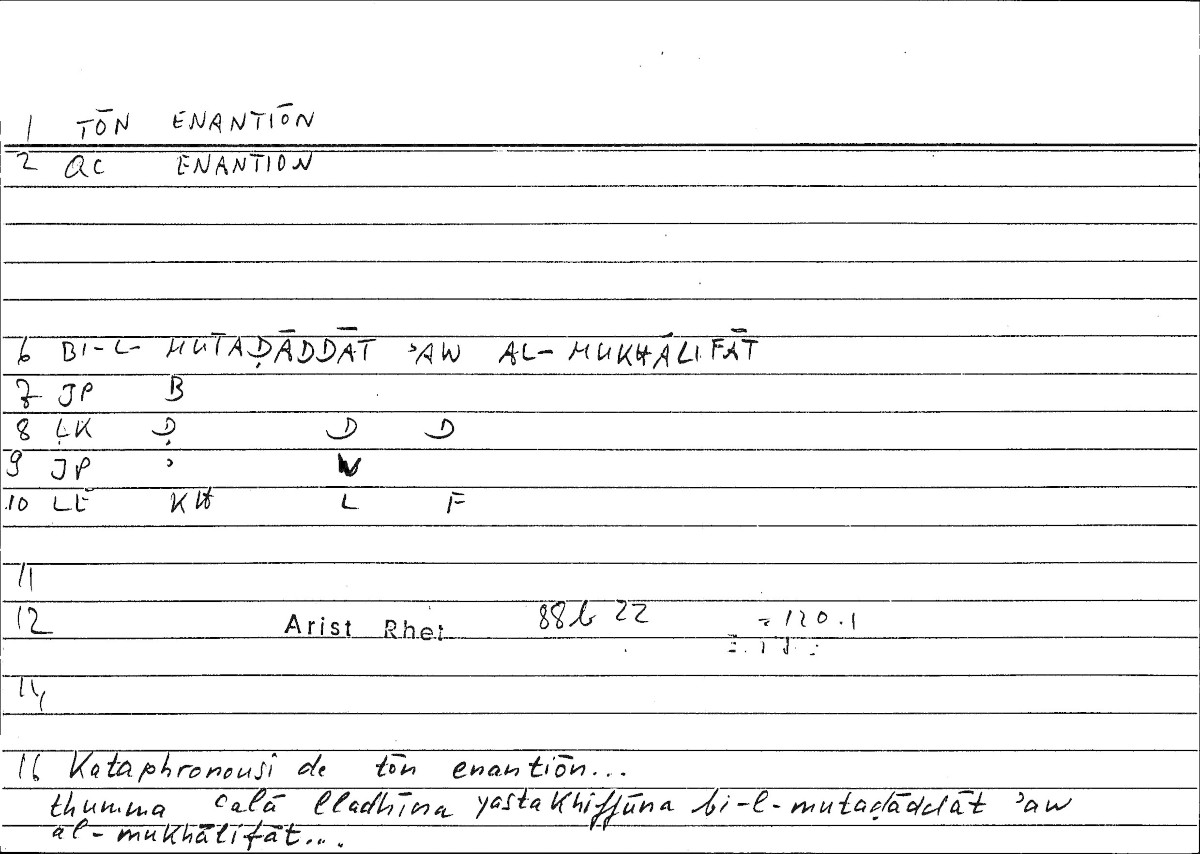 1 TŌN ENANTIŌN
2 QC ENANTION
6 BI-L- MUTAḌĀDDĀT ʾAW AL- MUKHĀLIFĀT
7 JP B
8 ḶK Ḍ D D
9 JP ʾ W
10 LE KH L F
11
12 Arist Rhet 88b 22 = 120.1
14
16 Kataphronousi de tōn enantiōn...
thumma ʿalā lladhīna yastakhiffūna bi-l-mutaḍāddāt ʾaw
al-mukhālifāt...